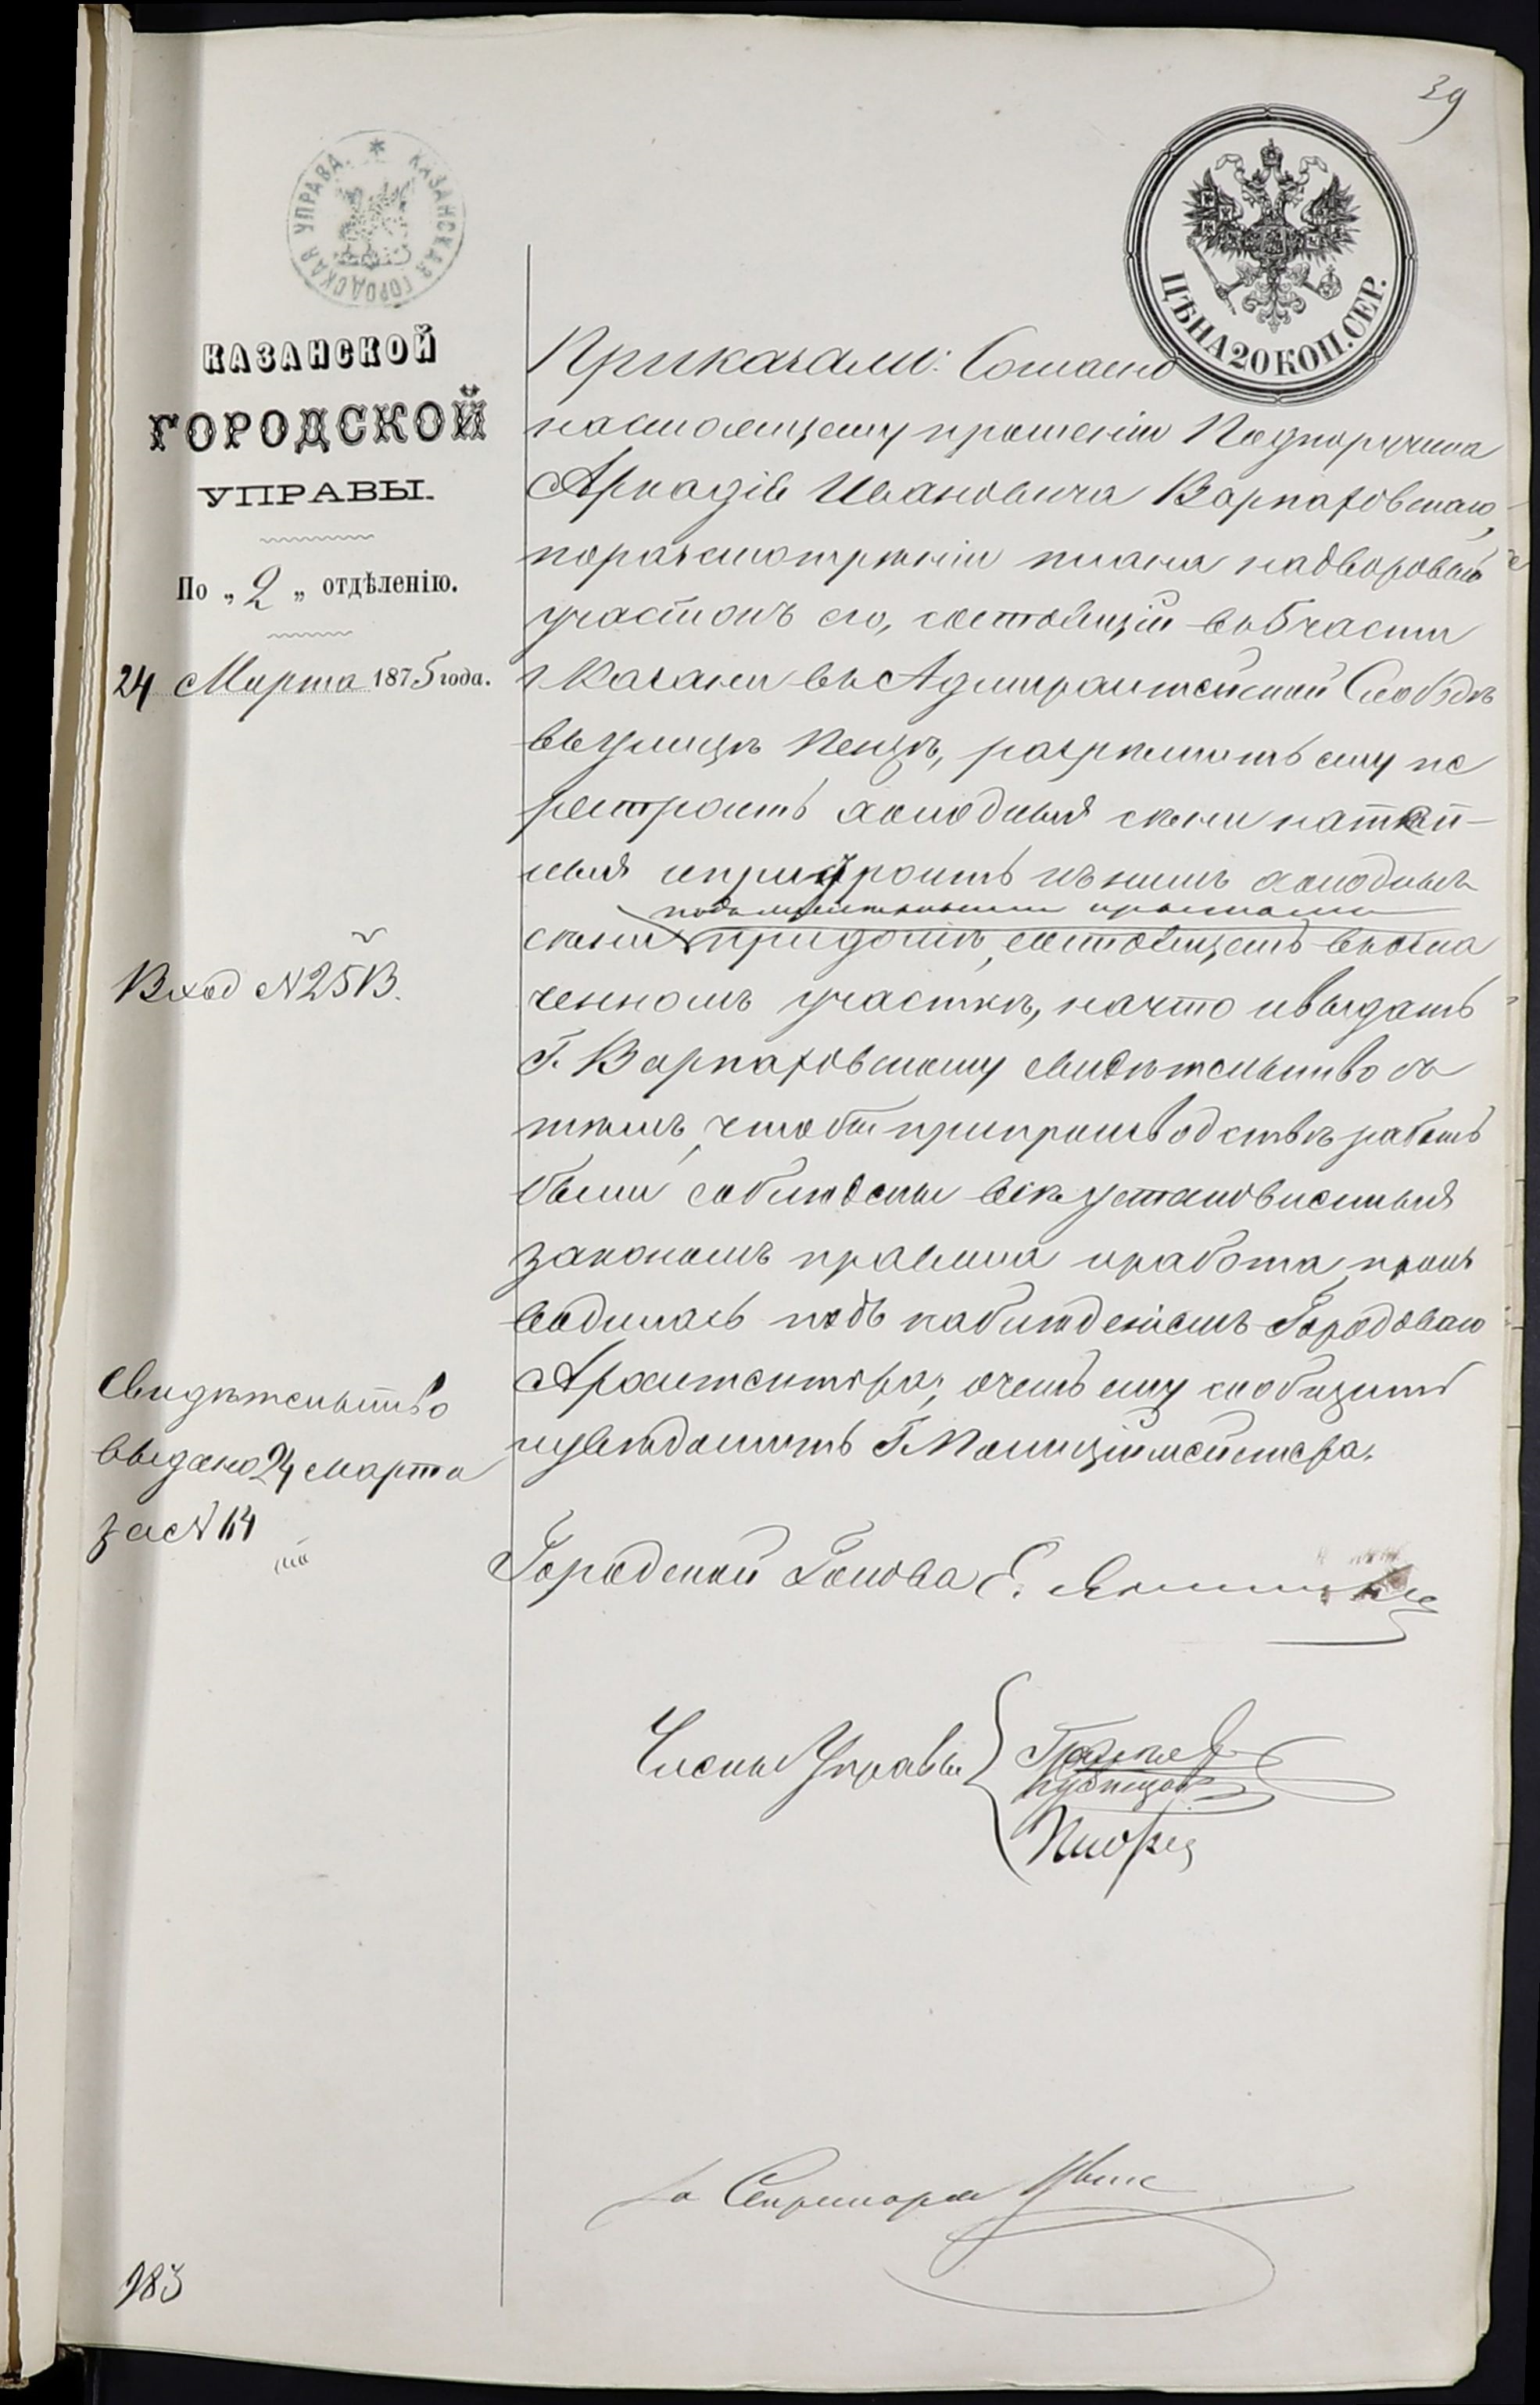 39
КАЗАНСКАЯ ГОРОДСКАЯ УПРАВА.
ЦѢНА 20 КОП. СЕР.
КАЗАНСКОЙ
ГОРОДСКОЙ
УПРАВЫ.
По „2„ отдѣленію.
24 Марта 1875 года.
Вход №25В.
Свидѣтельство
выдано 24 марта
за №
Приказали: Согласно
настоящему прошенію Подпоручика
Аркадія Ивановича Варпаховскаго,
поразсмотрѣніи плана надворовый
участокъ его, состоящій въ 5 части
г Казани въ Адмиралтейской Слободѣ
въ улицѣ Пенцѣ, разрѣшить ему пе
рестроить холодныя сѣни на теп-
лыя и пристроить къ нимъ холодныя
сѣни при домѣ, состоящемъ въ озна
ченномъ участкѣ, на что и выдать
Г. Варпаховскому свидѣтельство съ
тѣмъ, чтобы при производствѣ работъ
были соблюдены всѣ установленныя
закономъ правила и работа произ
водилась подъ наблюденіемъ Городоваго
Архитектора; о чемъ ему сообщить
и увѣдомить Г. Полиціймейстера.
Городской Голова Е.
Члены Управы
Кузнецов
За Секретаря
983